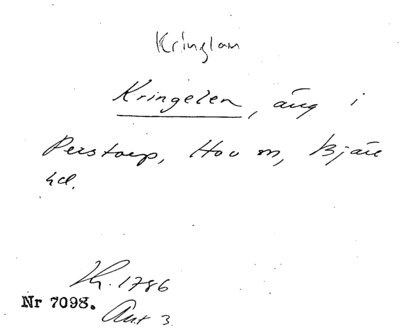 Kringlan
Kringelen, äng i
Perstorp, Hov sn, Bjäre
hd.
Lm. 1786
Nr 7098.
Akt 3